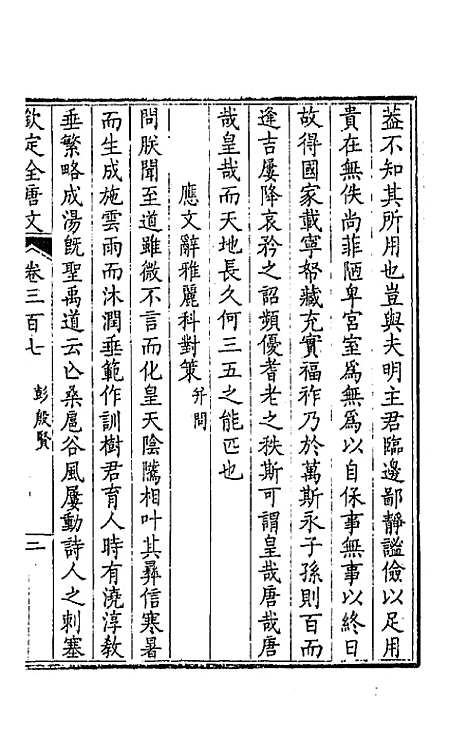 葢不知其所用也豈與夫明主君臨邊鄙靜謐儉以足用
貴在無佚尚菲陋卑宮室為無為以自保事無事以終日
故得國家載寧帑藏充實福祚乃於萬斯永子孫則百而
逢吉屢降哀矜之詔頻優耆老之秩斯可謂皇哉唐哉唐
哉皇哉而天地長久何三五之能匹也
應文辭雅麗科對策 并問
問朕聞至道雖微不言而化皇天陰騭相叶其彞信寒暑
而生成施雲雨而沐潤垂範作訓樹君育人時有澆淳教
垂繁略成湯旣聖禹道云亾桑扈谷風屢動詩人之刺塞
欽定全唐文 卷三百七 彭殷賢 二